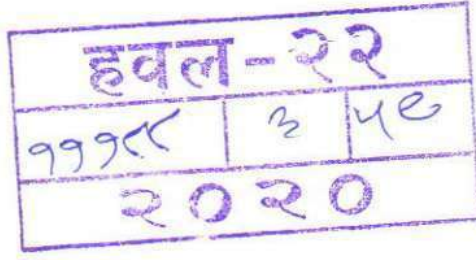 हवल-२२
१११८८ ३ ५९
२०२०